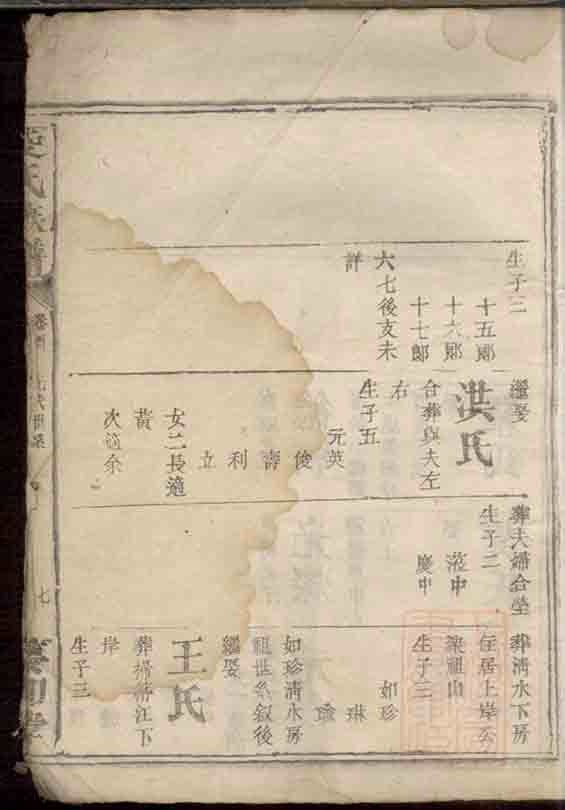 生子三
十五郎
十六郎
十七郎
六七後支未
詳
繼娶
洪氏
合葬與夫左
右
生子五
元英
俊
壽
利
立
女二長適
黃
次適余
葬夫婦合塋
生子二
中
慶中
葬清水下房
住居上岸公
梁祖山
生子三
如珍
琳
如珍清水房
祖世系叙後
繼娶
王氏
葬掃箒江下
岸
生子三
氏族譜
七